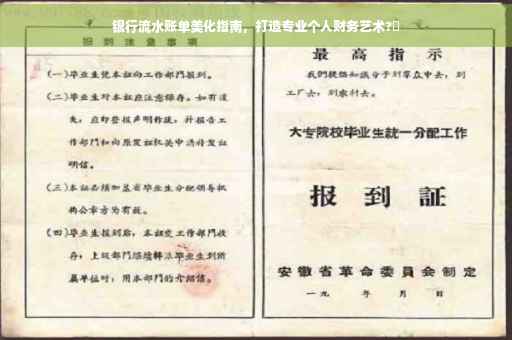 银行流水账单美化指南，打造专业个人财务艺术?
报到注意事项
(一)毕业生凭本证向工作部门报到。
(二)毕业生对本证应注意保存。如有遗
失，应即登报声明作废，并报告工
作部门和向原发证机关申请补发证
明信。
(三)本证必须加盖省毕业生分配领导机
构公章方为有效。
(四)毕业生报到后，本证交工作部门收
存；上级部门继续转派毕业生到所
属单位时，用本部门的介绍信。
最高指示
我们提倡知识分子到群众中去，到
工厂去，到农村去。
大专院校毕业生統一分配工作
报到証
安徽省革命委員会制定
一九 年 月 日